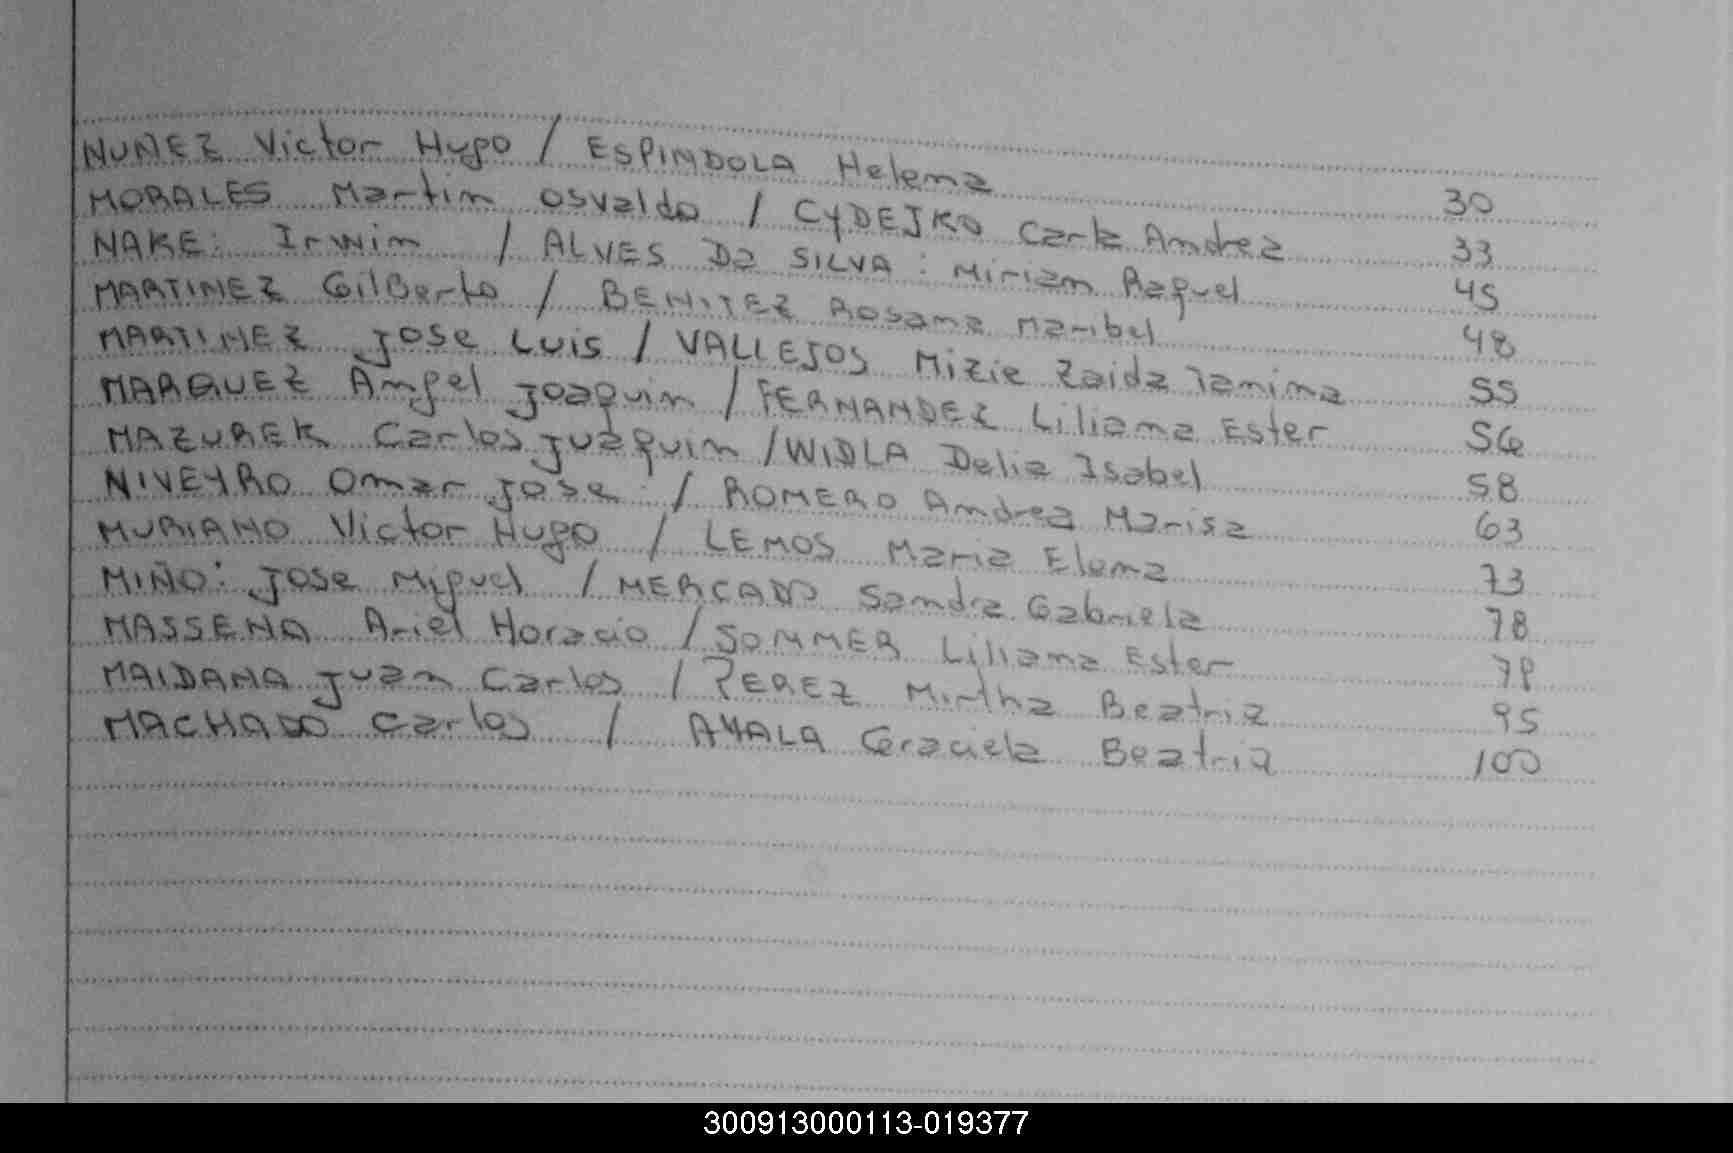 NUÑEZ Victor Hugo / ESPINDOLA Helena 30
MORALES Martin Osvaldo / CYDEJKO Carla Andrea 33
NAKE: Irwin / ALVES Da SILVA: Miriam Raquel 45
MARTINEZ GilBerto / BENITEZ Rosana Maribel 48
MARTINEZ Jose Luis / VALLEJOS Zaida 55
MARQUEZ Angel Joaquin / FERNANDEZ Liliana Ester 56
MAZUREK Carlos Juaquin / WIDLA Delia Isabel 58
NIVEYRO Omar Jose / ROMERO Andrea Marisa 63
MURIANO Victor Hugo / LEMOS Maria Elena 73
MIÑO: Jose Miguel / MERCADO Sandra Gabriela 78
MASSENA Ariel Horacio / SOMMER Liliana Ester 79
MAIDANA Juan Carlos / PEREZ Mirtha Beatriz 95
MACHADO Carlos / AYALA Graciela Beatriz 100
300913000113-019377